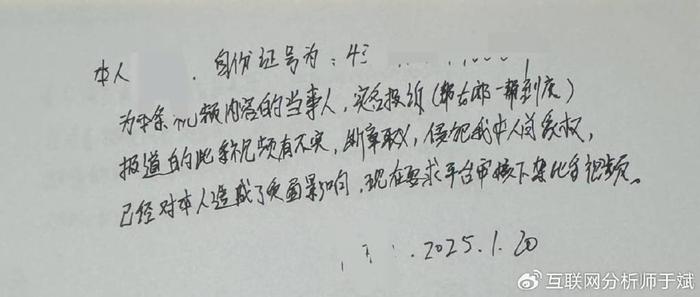 本人 . 身份证号为：43
为本条视频内容的当事人，实名投诉（帮太郎一帮到底）
报道的此条视频有不实，断章取义，侵犯我本人肖象权，
已经对本人造成了负面影响，现在要求平台审核下架此条视频。
2025.1.20
@互联网分析师于斌